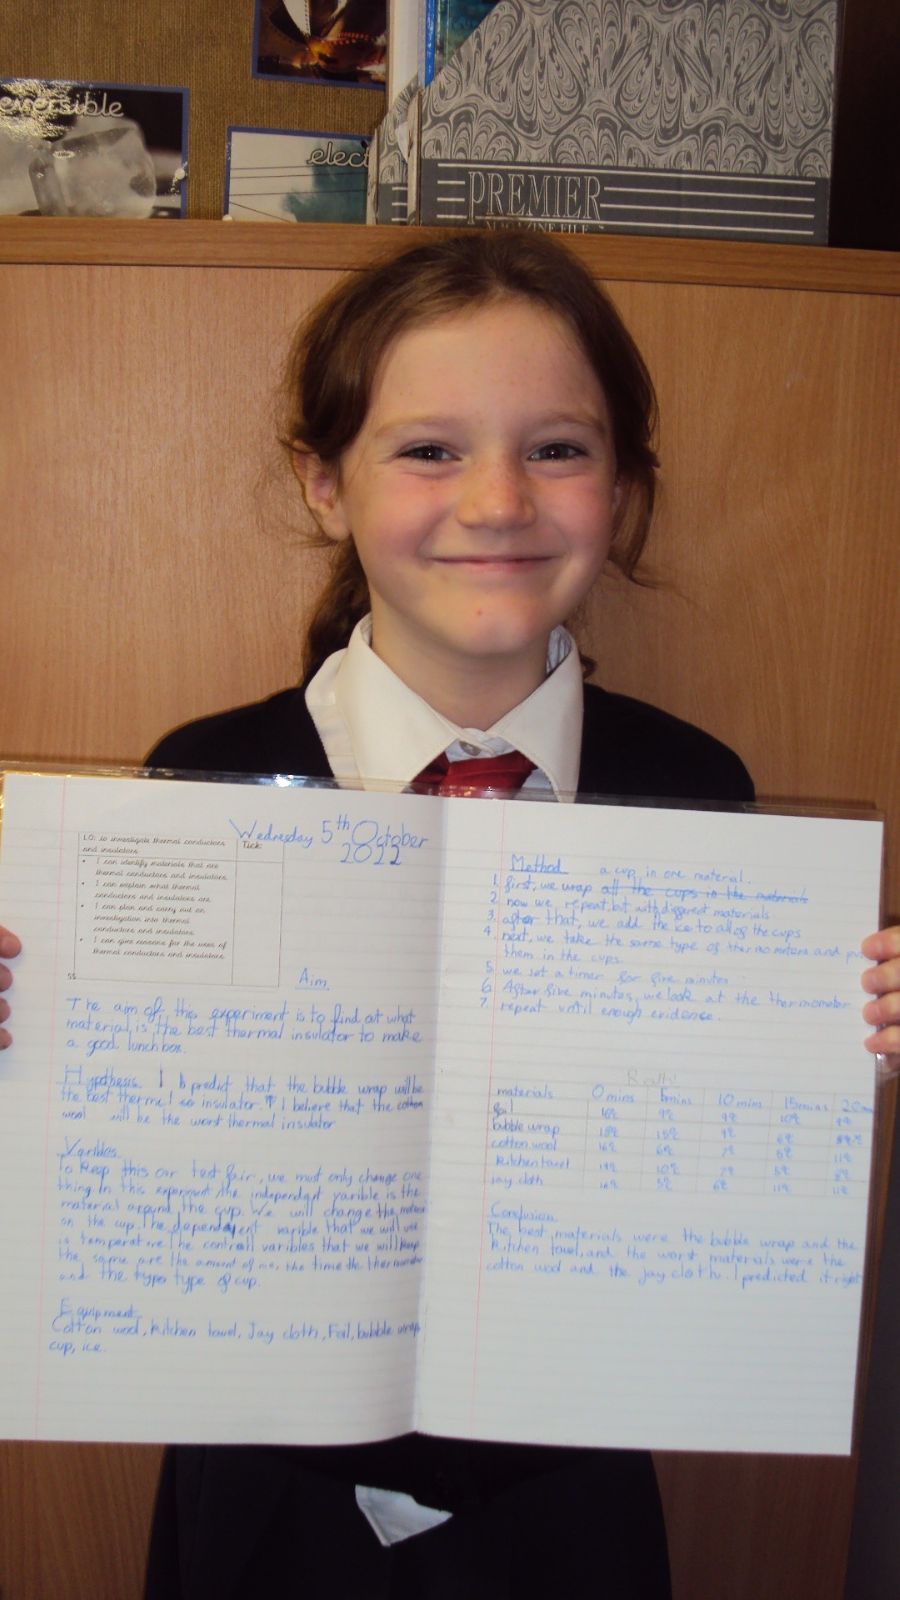 eversible
elect
PREMIER
MAGAZINE FILE
Wednesday 5th October
2022
LO: to investigate thermal conductors
and insulators
Tick:
• I can identify materials that are
thermal conductors and insulators.
• I can explain what thermal
conductors and insulators are.
• I can plan and carry out an
investigation into thermal
conductors and insulators.
• I can give reasons for the uses of
thermal conductors and insulators.
SS
Aim
The aim of this experiment is to find out what
material is the best thermal insulator to make
a good lunchbox.
Hypothesis I predict that the bubble wrap will be
the best thermal insulator. I believe that the cotton
wool will be the worst thermal insulator
Varibles
To keep this our test fair, we must only change one
thing. In this experiment the independent varible is the
material around the cup. We will change the
on the cup. The dependent varible that we will use
is temperature. The controll varibles that we will keep
the same are the amount of ice, the time the thermometer
and the type type of cup.
Equipment
Cotton wool, kitchen towel, Jay cloth, Foil, bubble wrap
cup, ice.
Method
a cup in one material.
1. first, we wrap all the cups in the materials
2. now we repeat but with different materials
3. after that, we add the ice to all of the cups
4. next, we take the same type of thermometers and put
them in the cups.
5. we set a timer for five minutes
6. After five minutes, we look at the thermometer
7. repeat until enough evidence.
materials 0 mins 5mins 10 mins 15mins 20
foil
bubble wrap
cotton wool
kitchen towel
jay cloth
Conclusion
The best materials were the bubble wrap and the
kitchen towel, and the worst materials were the
cotton wool and the jay cloth. I predicted it right